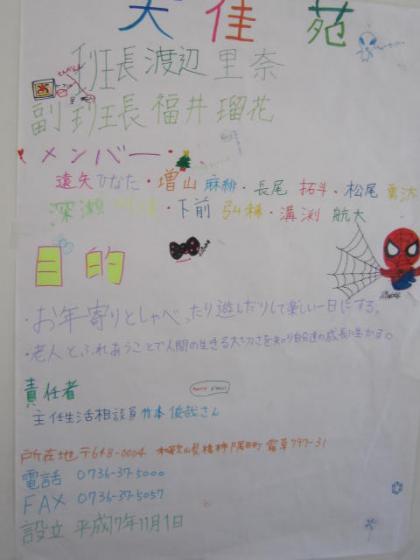 佳苑
班長 渡辺里奈
副班長 福井瑠花
メンバー
遠矢ひなた・増山麻緋・長尾拓斗・松尾
深瀬・下前弘稀・溝渕航大
目的
・お年寄りとしゃべったり遊んだりして楽しい一日にする。
・老人とふれあうことで人間の生きる大切さを知り自分達の成長に生かる。
責任者
主任生活相談員 竹本俊哉さん
所在地 〒648-0004 和歌山県橋本市隅田町 霜草797-31
電話 0736-37-5000
FAX 0736-37-5057
設立 平成17年11月1日